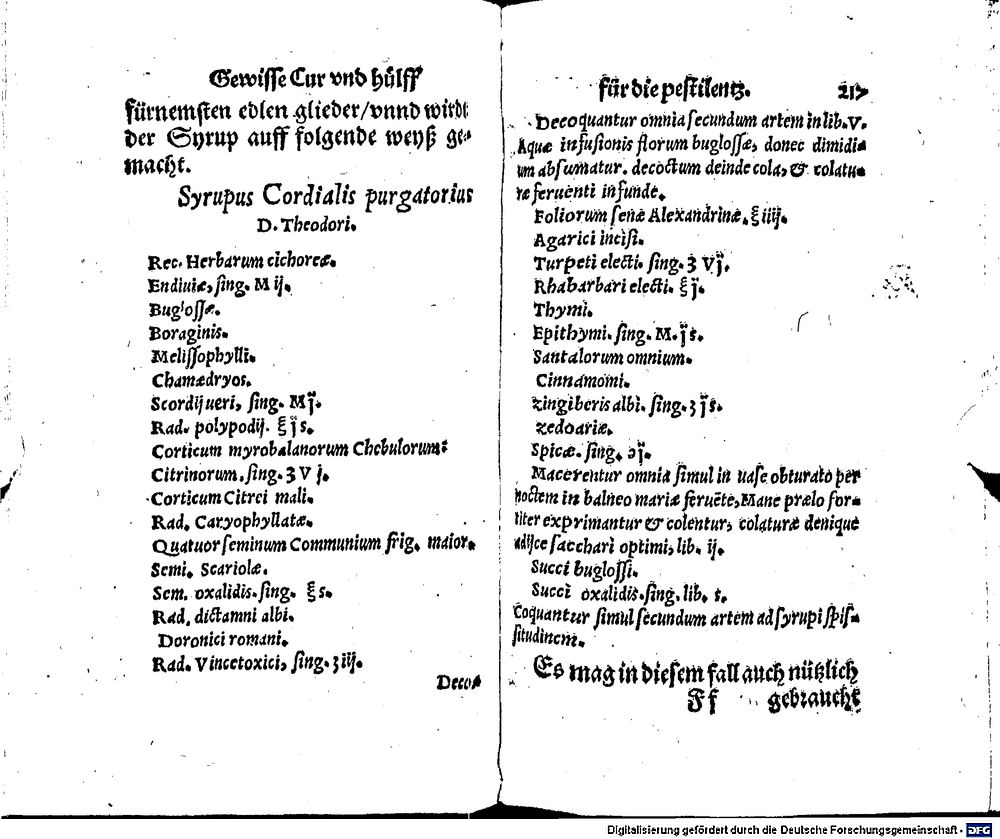 Gewisse Cur vnd hülff
fürnemsten edlen glieder/vnnd wirdt
der Syrup auff folgende weyß ge-
macht.
Syrupus Cordialis purgatorius
D. Theodori.
Rec. Herbarum cichoreæ.
Endiuiæ, sing. M ij.
Buglossæ.
Boraginis.
Melissophylli.
Chamædryos.
Scordij ueri, sing. M j.
Rad. polypodij. ℥ j s.
Corticum myrobalanorum Chebulorum:
Citrinorum. sing. ʒ V j.
Corticum Citrei mali.
Rad. Caryophyllatæ.
Quatuor seminum Communium frig. maior.
Semi. Scariolæ.
Sem. oxalidis. sing. ℥ s.
Rad. dictamni albi.
Doronici romani.
Rad. Vincetoxici, sing. ʒ iij.
Deco-
für die pestilentz. 217
Decoquantur omnia secundum artem in lib. V.
Aquæ infusionis florum buglossæ, donec dimidi-
um absumatur. decoctum deinde cola, & colatu-
ræ feruenti infunde.
Foliorum senæ Alexandrinæ. ℥ iiij.
Agarici incisi.
Turpeti electi. sing. ʒ Vj.
Rhabarbari electi. ℥ j.
Thymi.
Epithymi. sing. M. j s.
Santalorum omnium.
Cinnamomi.
zingiberis albi. sing. ʒ j s.
zedoariæ.
Spicæ. sing. ℈ j.
Macerentur omnia simul in uase obturato per
noctem in balneo mariæ feruēte, Mane prælo for-
titer exprimantur & colentur, colaturæ denique
adijce sacchari optimi, lib. ij.
Succi buglossi.
Succi oxalidis. sing. lib. s.
Coquantur simul secundum artem ad syrupi spis-
situdinem.
Es mag in diesem fall auch nützlich
Ff gebraucht
Digitalisierung gefördert durch die Deutsche Forschungsgemeinschaft - DFG